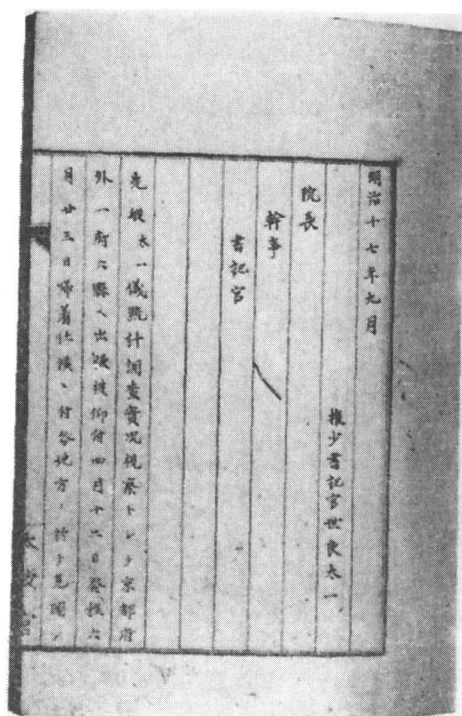 明治十七年九月
権少書記官世良太一
院長
幹事
書記官
先般太一儀統計調査実況視察トシテ京都府
外一府六縣ヘ出張被仰付四月十二日発程六
月廿三日帰着仕候ニ付各地方ニ於テ見聞ノ